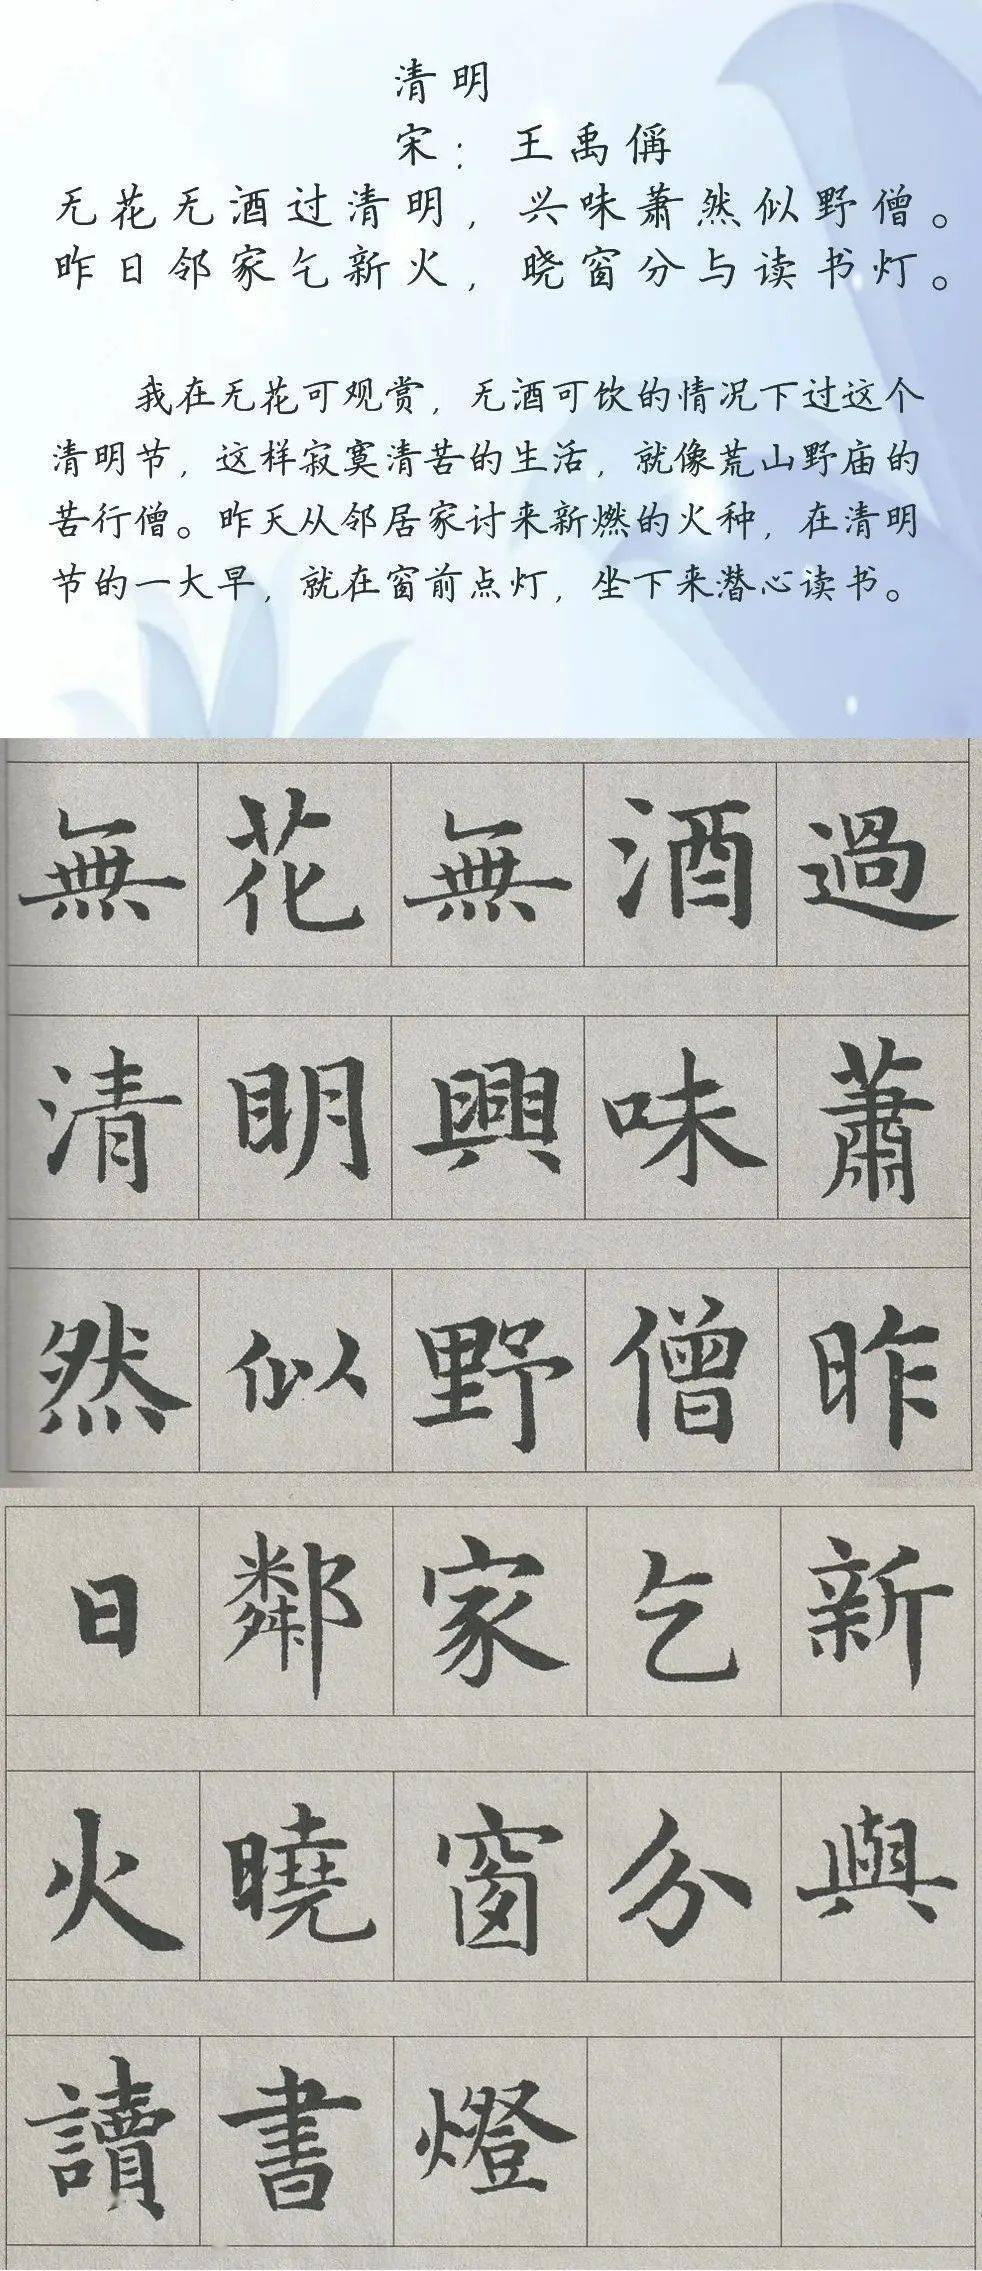 清明
宋：王禹偁
无花无酒过清明，兴味萧然似野僧。
昨日邻家乞新火，晓窗分与读书灯。
我在无花可观赏，无酒可饮的情况下过这个
清明节，这样寂寞清苦的生活，就像荒山野庙的
苦行僧。昨天从邻居家讨来新燃的火种，在清明
节的一大早，就在窗前点灯，坐下来潜心读书。
無花無酒過
清明興味蕭
然似野僧昨
日鄰家乞新
火曉窗分與
讀書燈